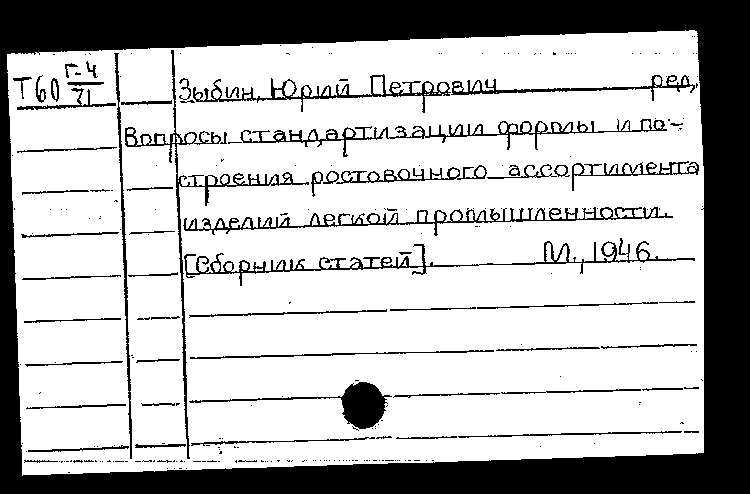 Т60 Г-4/71 Зыбин, Юрий Петрович ред.
Вопросы стандартизации формы и по-
строения ростовочного ассортимента
изделий легкой промышленности.
[Сборник статей]. М., 1946.